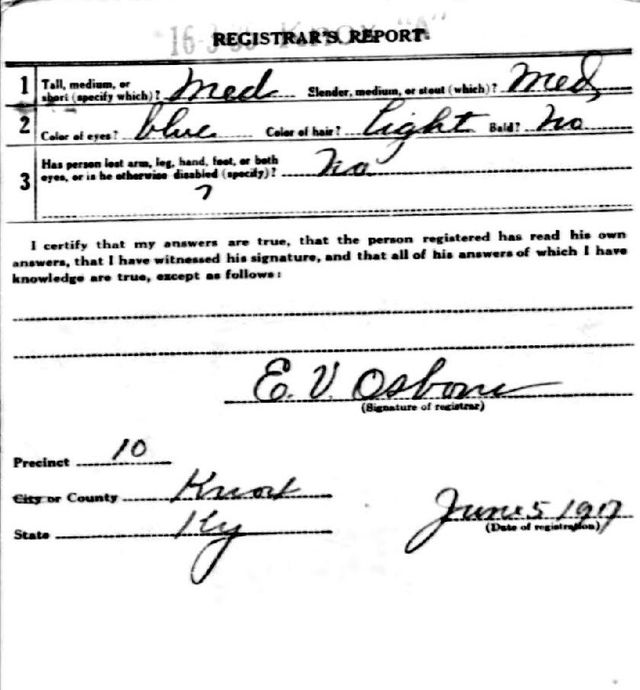 16-3- Knox "A"
REGISTRAR'S REPORT
1 Tall, medium, or short (specify which)? Med Slender, medium, or stout (which)? Med
2 Color of eyes? blue Color of hair? Light Bald? No
3 Has person lost arm, leg, hand, foot, or both eyes, or is he otherwise disabled (specify)? No
?
I certify that my answers are true, that the person registered has read his own
answers, that I have witnessed his signature, and that all of his answers of which I have
knowledge are true, except as follows:
E. V. Osborne
(Signature of registrar)
Precinct 10
City or County Knox
State Ky
June 5 1917
(Date of registration)